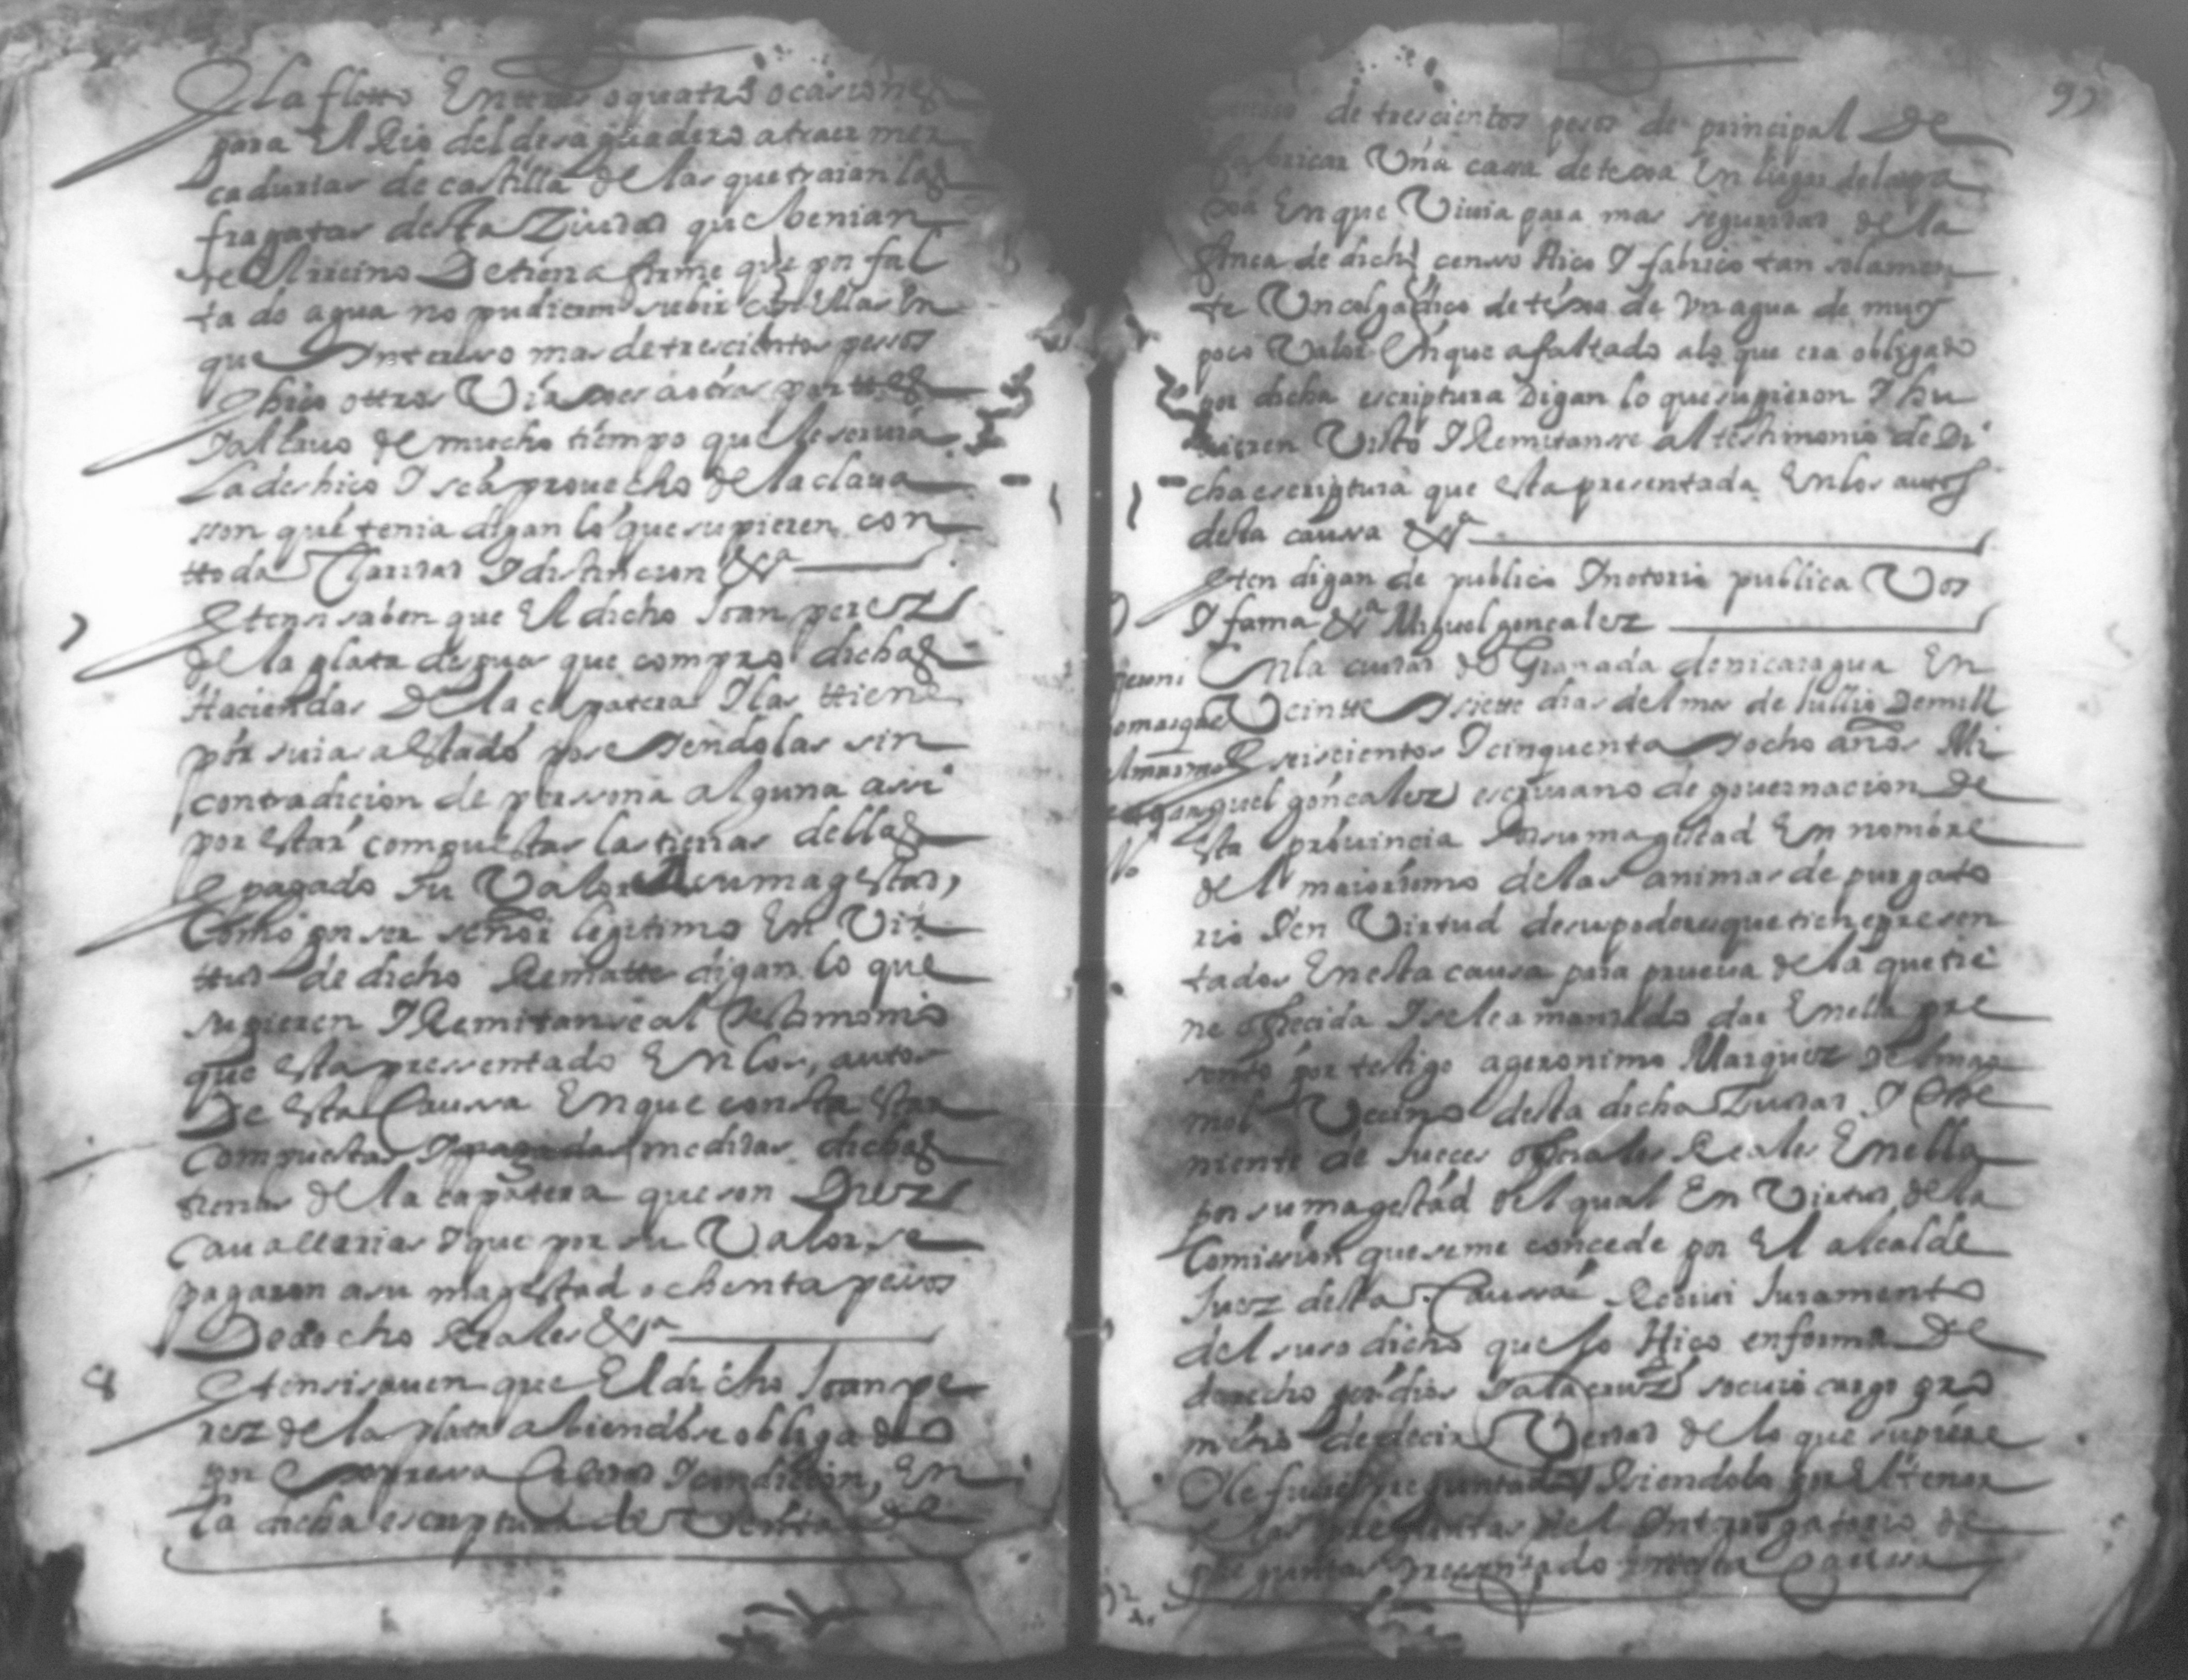 la fletto En ttres o quatro ocasiones
para El Rio del desaguadero a traer mer
cadurias de castilla de las que traian las
fragatas desta Ziudad que benian
de El Reino De tierra firme que por fal
ta de agua no pudieron subir con Ellas En
que Intereso mas de trescientos pessos
E hiço ottros Viajes a otras partes
I al cavo de mucho tiempo que le servia
La deshiço I se aprouecho de la claua
son que tenia digan lo que supieren con
ttoda Claridad I distincion &ª
7 Iten si saben que El dicho Joan perez
de la plata despues que compro dichas
Haciendas De la capatera I las ttiene
por suias a Estado poseiendolas sin
contradicion de perssona alguna assi
por Estar compuestas las tierras dellas
E pagado su Valor A su magestad,
Como por ser señor legitimo En Vir
ttud de dicho Rematte digan lo que
supieren I Remitanse al Testimonio
que Esta pressentado En los, autos
De Esta Caussa En que consta Estar
Compuestas I pagadas medidas dichas
tierras de la capatera que son Diez
Cauallerias I que por su Valor, se
pagaron a su magestad ochenta pessos
De a ocho Reales &ª
8 Iten si sauen que El dicho Joan pe
rez de la plata abiendose obligado
por Expressa Calidad I condiction, En
la dicha escriptura de Venta de
97
censso de trescientos pesos de principal De
fabricar Una casa de texa En lugar de la pa
En que Viuia para mas seguridad de la
finca de dicho censo Hiço I fabrico tan solamen
te Un colgadiço de texa de Un agua de muy
poco Valor En que a faltado a lo que era obligado
por dicha escriptura Digan lo que supieron I hu
uieren Visto I Remitansse al testimonio de Di
cha escriptura que Esta presentada En los autos
desta causa &ª
Iten digan de publico I notorio publica Vos
I fama &ª Miguel gonçalez
En la ciudad de Granada de nicaragua En
Veintte I siette dias del mes de Jullio De mill
E seiscientos I cinquenta I ocho años Mi
guel gonçalez escriuano de gouernacion De
Esta prouincia Por su magestad En nombre
del maiordomo de las animas de purgato
rio I en Virtud de su poder es que tiene presen
tados En esta causa para prueua de la que tie
ne ofrecida I se le a mandado dar En ella pre
sento por testigo a geronimo Marquez Del mar
mol Vecino desta dicha Ziudad I The
niente de Jueces oficiales Reales En ella
por su magestad del qual En Virtud de la
Comission que se me concede por El alcalde
Juez desta Caussa Reciui Juramento
del suso dicho que lo Hiço en forma De
derecho por dios I a la cruz so cuio cargo pro
metio de decir Verdad de lo que supiere
I le fuere preguntado I siendolo por El tenor
de las preguntas del Interrogatorio de
preguntas presentado En esta Caussa